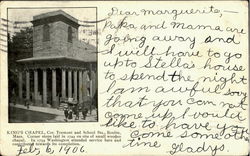 Dear Marguerite,
Papa and Mama are
going away and
I will have to go
up to Stella's house
to spend the night
I am awful sorry
that you can not
come up. I would
like to have you
come some other
time Gladys
KING'S CHAPEL, Cor. Tremont and School Sts., Boston,
Mass. Corner stone laid in 1749 on site of small wooden
chapel. In 1789 Washington attended service here and
contributed towards its completion.
Feb. 6, 1906.